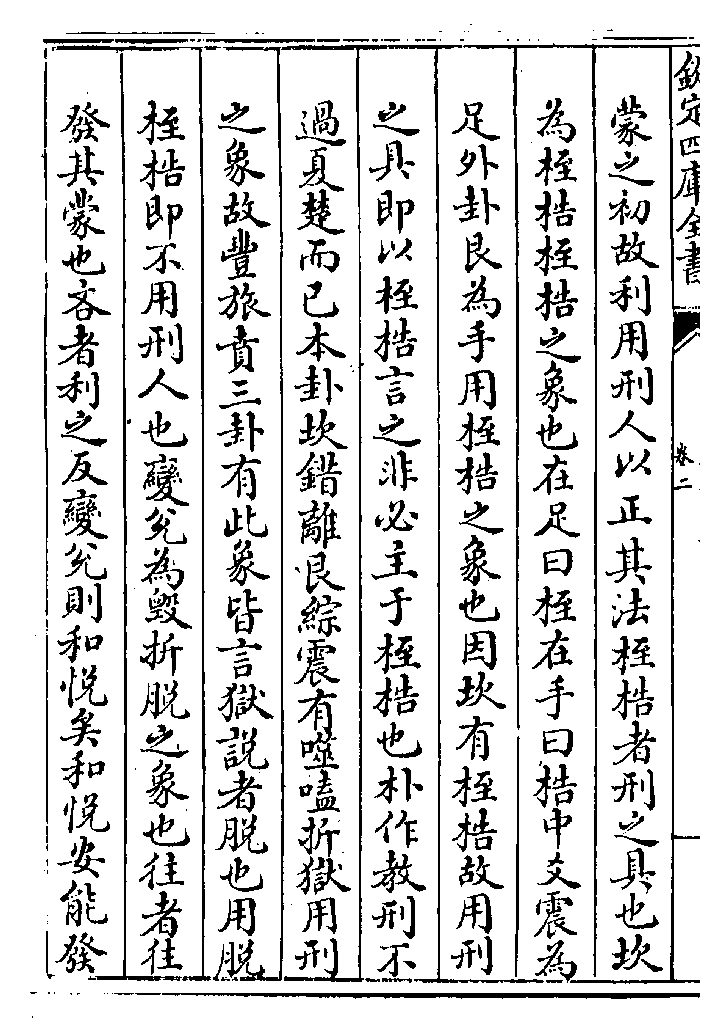 欽定四庫全書
卷二
蒙之初故利用刑人以正其法桎梏者刑之具也坎
為桎梏桎梏之象也在足曰桎在手曰梏中爻震為
足外卦艮為手用桎梏之象也因坎有桎梏故用刑
之具即以桎梏言之非必主于桎梏也朴作教刑不
過夏楚而已本卦坎錯離艮綜震有噬嗑折獄用刑
之象故豐旅賁三卦有此象皆言獄說者脫也用脫
桎梏即不用刑人也變兊為毀折脫之象也往者往
發其蒙也吝者利之反變兊則和悅矣和悅安能發